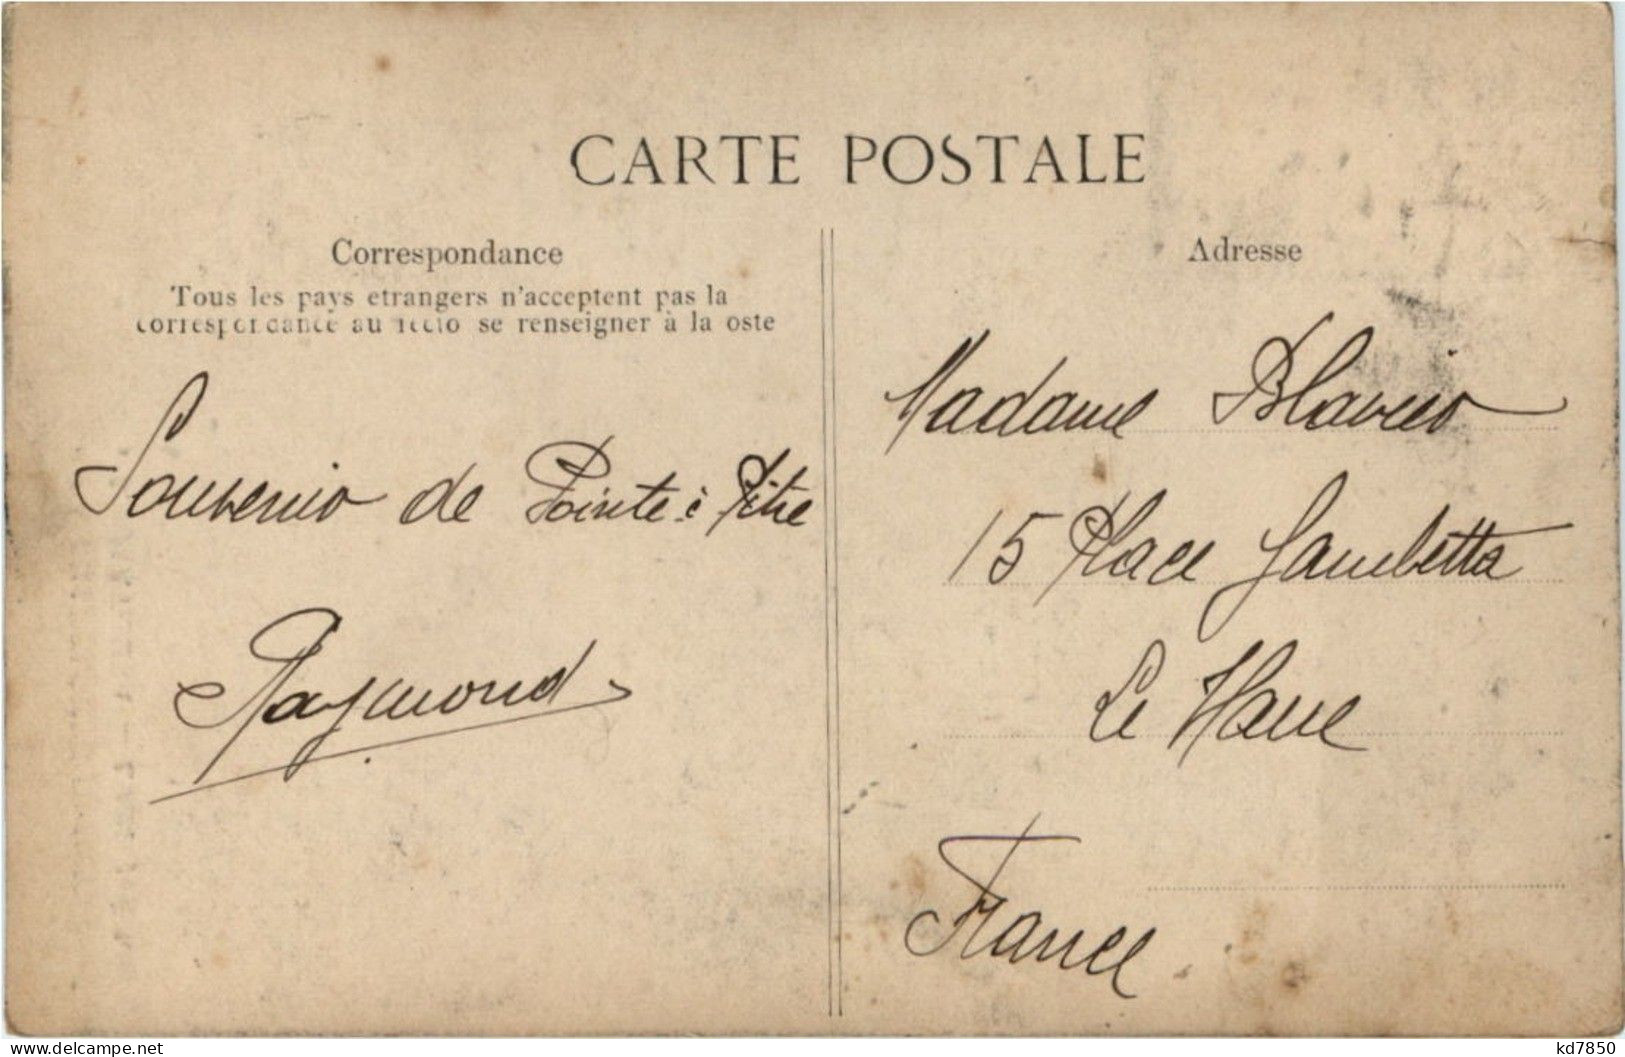 CARTE POSTALE
Correspondance
Tous les pays etrangers n'acceptent pas la
correspondance au recto se renseigner à la oste
Souvenir de Pointe à Pitre
Raymond
Adresse
Madame Blavier
15 Place Gambetta
Le Havre
France
www.delcampe.net
kd7850